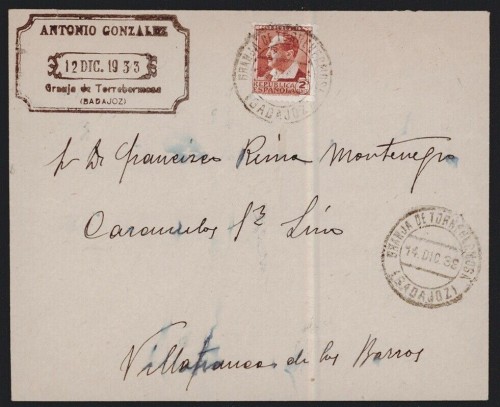 ANTONIO GONZALEZ
12 DIC. 1933
Granja de Torrehermosa
(BADAJOZ)
GRANJA DE TORREHERMOSA
(BADAJOZ)
REPUBLICA
ESPAÑOLA
2
Sr. D. Francisco Rima Montenegro
Villafranca de los Barros
GRANJA DE TORREHERMOSA
14. DIC 33
(BADAJOZ)